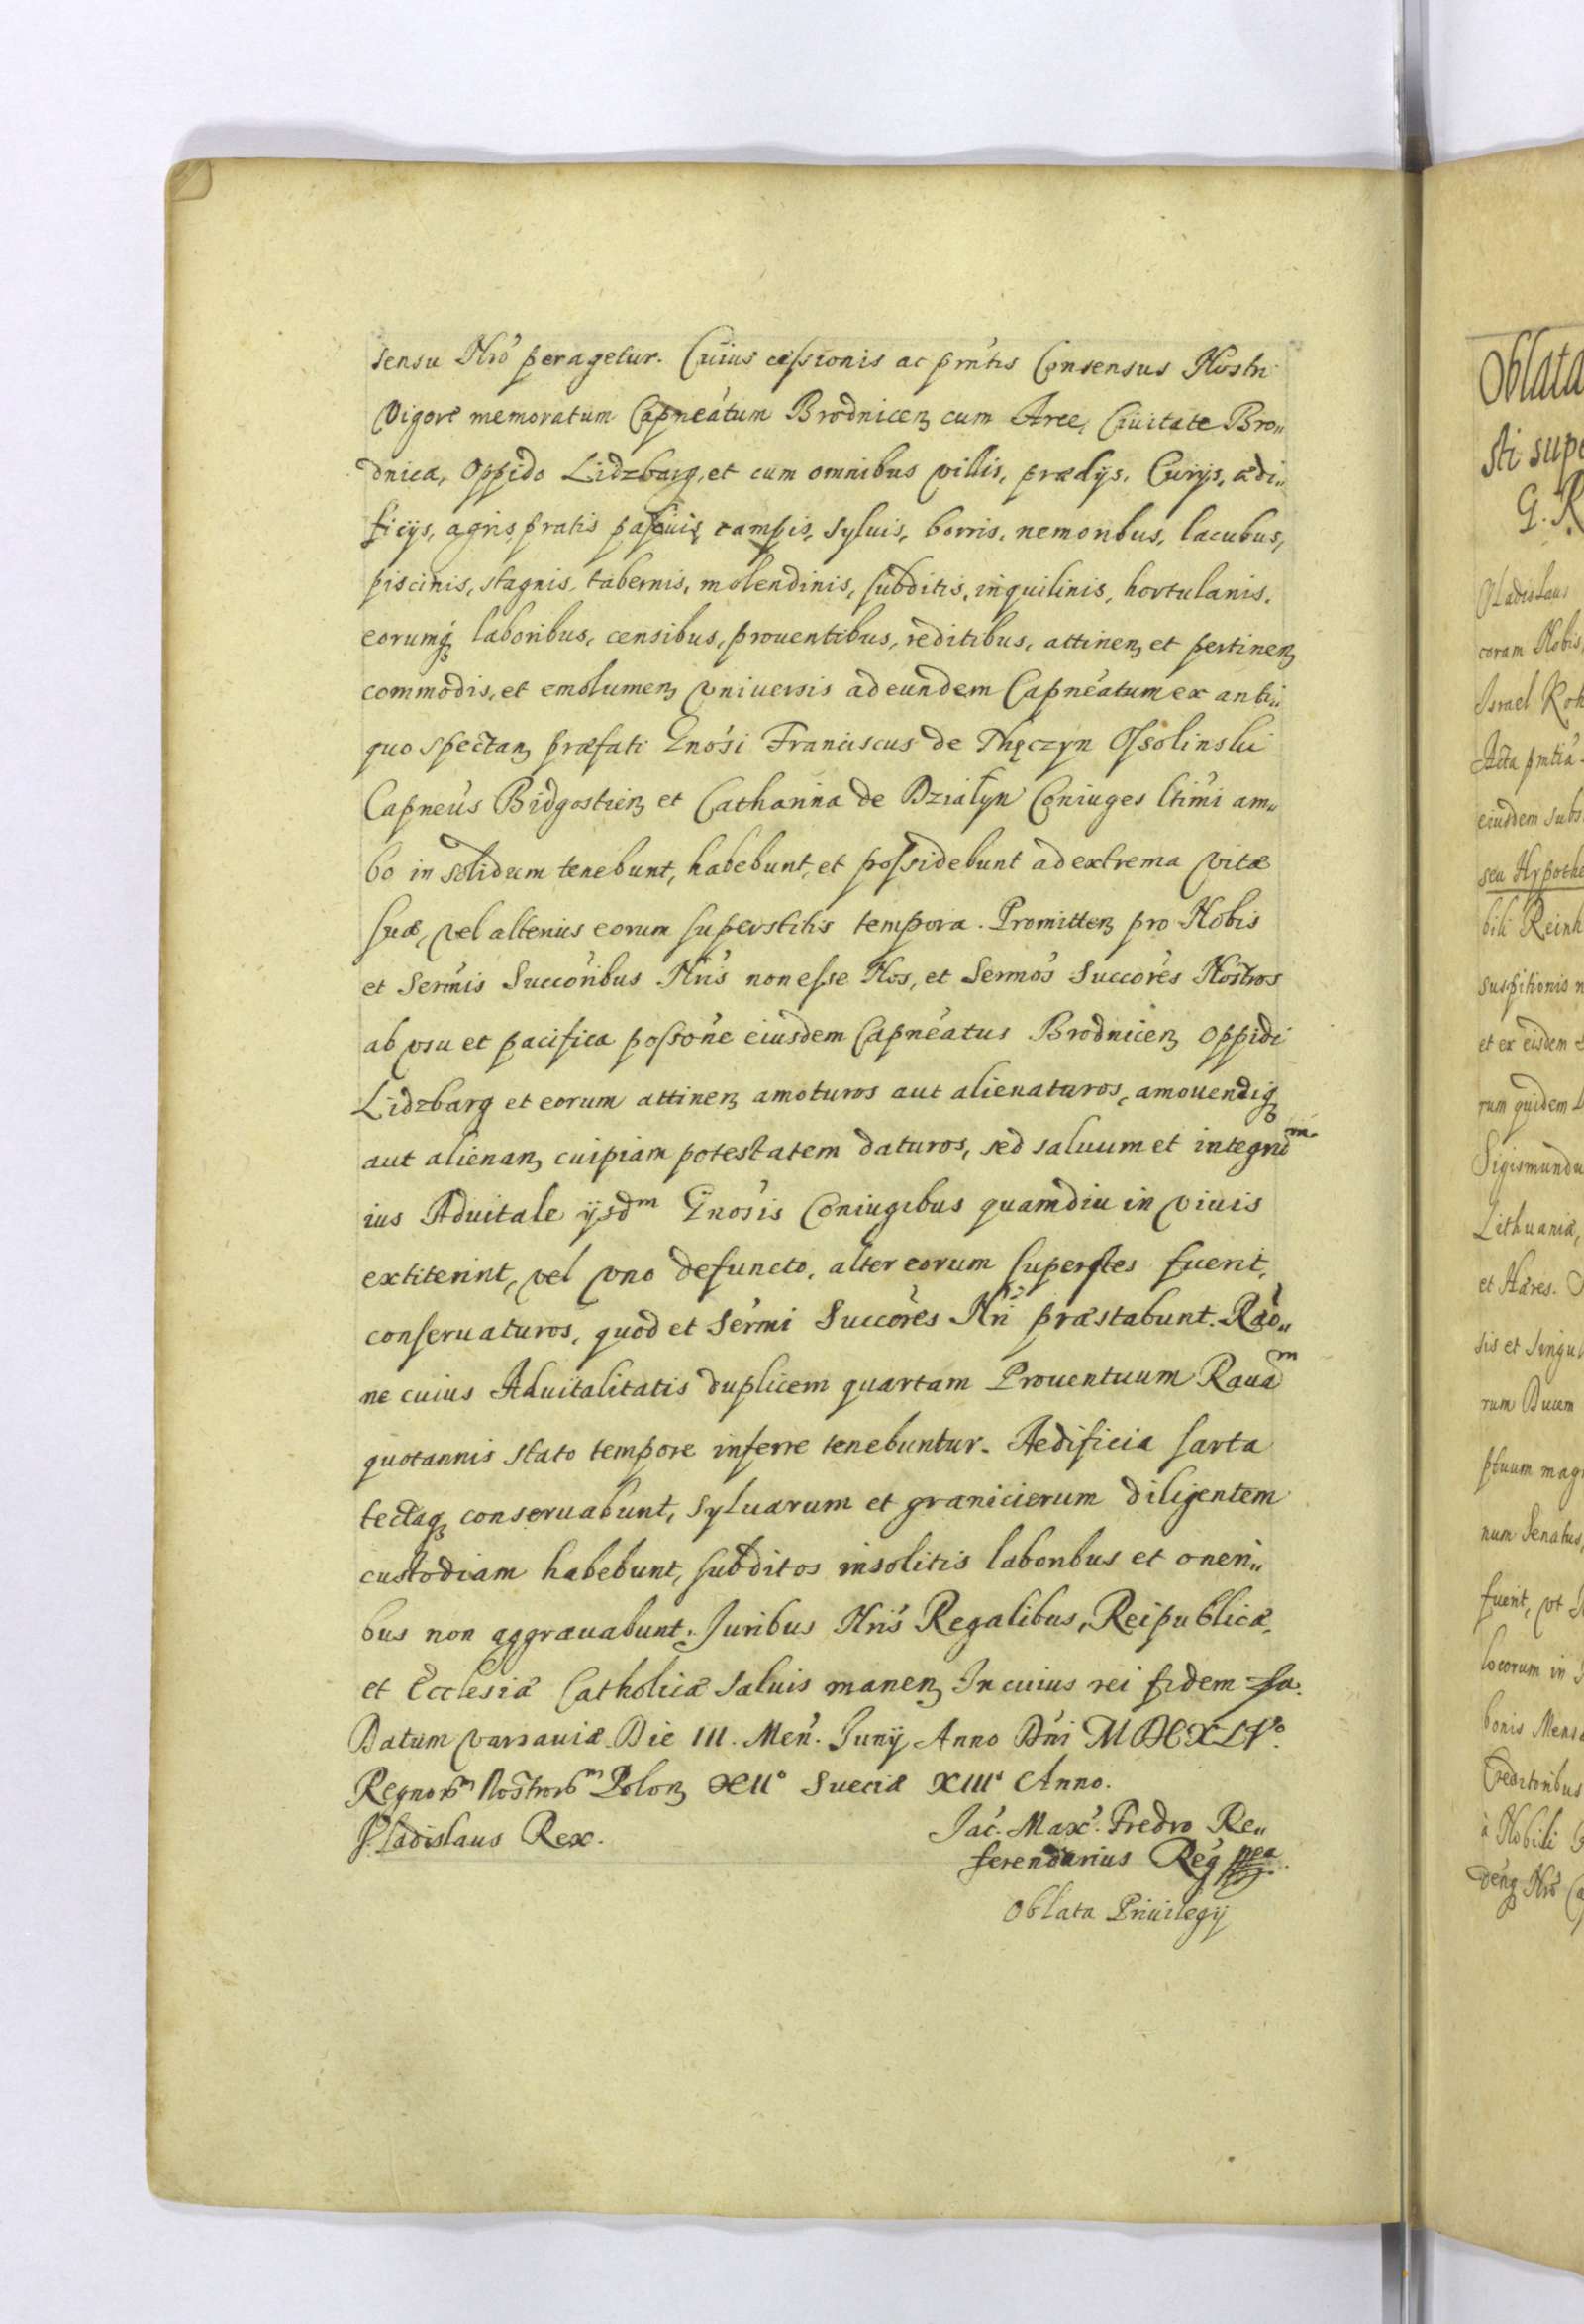 sensu Nro peragetur. Cuius cessionis ac pntis Consensus Nostri
Vigore memoratum Capneatum Brodnicen cum Arce, Ciuitate Bro„
dnica, Oppido Lidzbarg, et cum omnibus villis, prædijs, Curijs, ædi„
ficijs, agris, pratis pascuis, campis, syluis, borris, nemoribus, lacubus,
piscinis, stagnis, tabernis, molendinis, subditis, inquilinis, hortulanis,
eorumq laboribus, censibus, prouentibus, reditibus, attinen et pertinen
commodis, et emolumen vniuersis ad eundem Capneatum ex anti„
quo spectan præfati Gnosi Franciscus de Thęczyn Ossolinski
Capneus Bidgostien et Catharina de Działyn Coniuges ltimi am„
bo in solidum tenebunt, habebunt, et possidebunt ad extrema vitæ
suæ, vel alterius eorum superstitis tempora. Promitten pro Nobis
et Sermis Succoribus Nris non esse Nos, et Sermos Succores Nostros
ab vsu et pacifica possone eiusdem Capneatus Brodnicen oppidi
Lidzbarg et eorum attinen amoturos aut alienaturos, amouendiq
aut alienan cuipiam potestatem daturos, sed saluum et integrum
ius Aduitale ijsdm Gnosis Coniugibus quamdiu in viuis
extiterint, vel vno defuncto, alter eorum superstes fuerit,
conseruaturos, quod et Sermi Succores Nri præstabunt. Rao„
ne cuius Aduitalitatis duplicem quartam Prouentuum Rauam
quotannis stato tempore inferre tenebuntur. Aedificia sarta
tectaq conseruabunt, syluarum et granicierum diligentem
custodiam habebunt, subditos insolitis laboribus et oneri„
bus non aggrauabunt. Juribus Nris Regalibus, Reipublicæ,
et Ecclesiæ Catholicæ saluis manen In cuius rei fidem
Datum varsauiæ Die III. Men. Junij Anno Dni MDCXLVo.
Regnorm Nostrorm Polon XIIo Sueciæ XIIIo Anno.
Vladislaus Rex.
Jac. Max. Fredro Re„
ferendarius Reg
Oblata Priuilegij
Oblata
sti
G. R
Vladislaus
coram Nobis
Israel
Acta pntia
eiusdem subs
seu Hypothe
bili Reinh
suspitionis
et ex eisdem
rum quidem
Sigismundu
Lithuaniæ,
et Hæres.
sis et singul
rum Ducem
num Senatus,
fuerit, vt
locorum in
bonis
Creditoribus
à Nobili